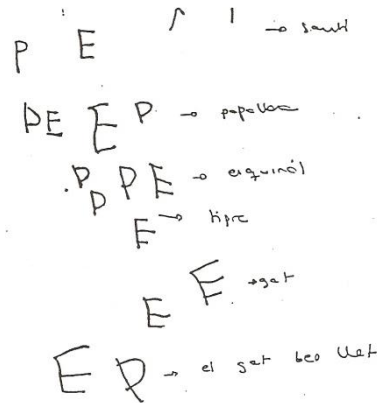 P E I I → santi
PE E P → papallona
P P P E → esquirol
E → tigre
E E → gat
E P → el gat beu llet